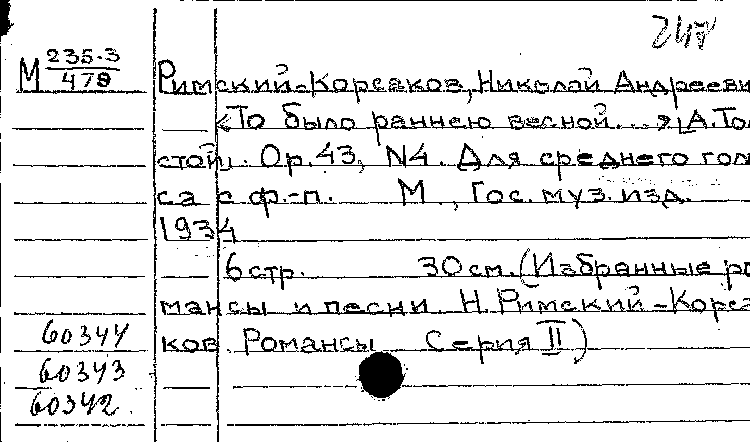 247
М 235.3/479
Римский-Корсаков, Николай Андрееви
«То было раннею весной...» [А. Тол
стой]. Op. 43, N4. Для среднего гол
са с ф.-п. М., Гос. муз. изд.
1934
6 стр. 30 см. (Избранные ро
мансы и песни. Н. Римский-Корса
ков. Романсы Серия II)
60344
60343
60342.